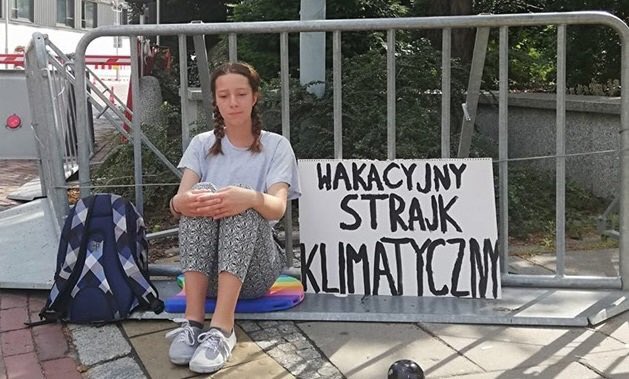 WAKACYJNY
STRAJK
KLIMATYCZNY